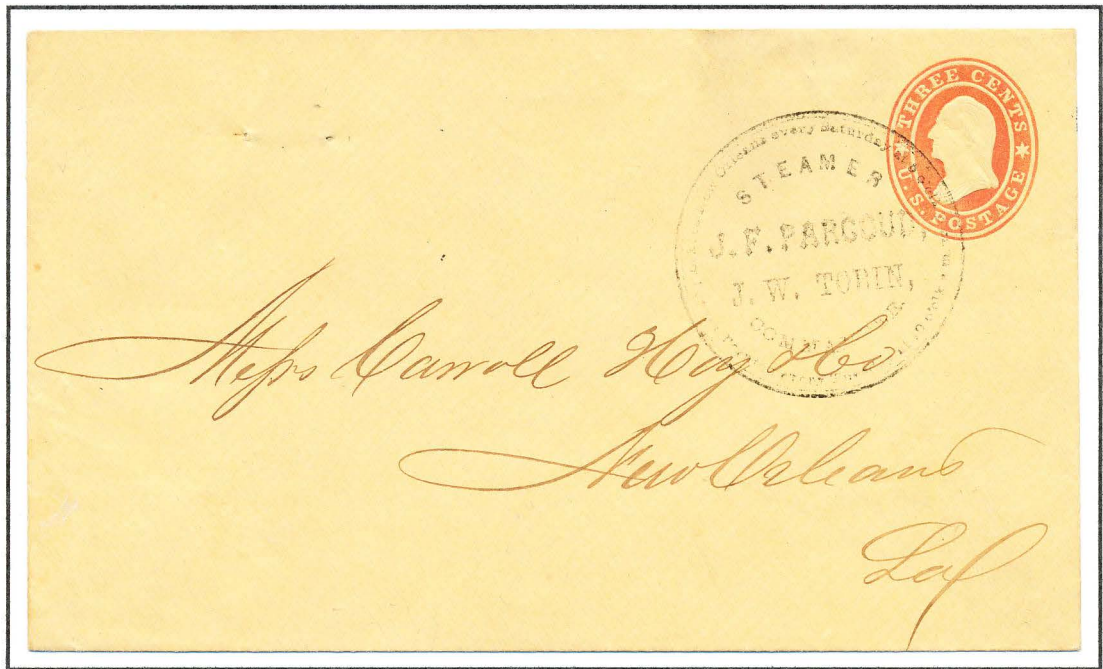 THREE CENTS
U.S. POSTAGE
Orleans every Saturday at 5
STEAMER
J. F. PARGOUD,
J. W. TOBIN,
COMMA
Messrs Carroll Hoy & Co
New Orleans
La